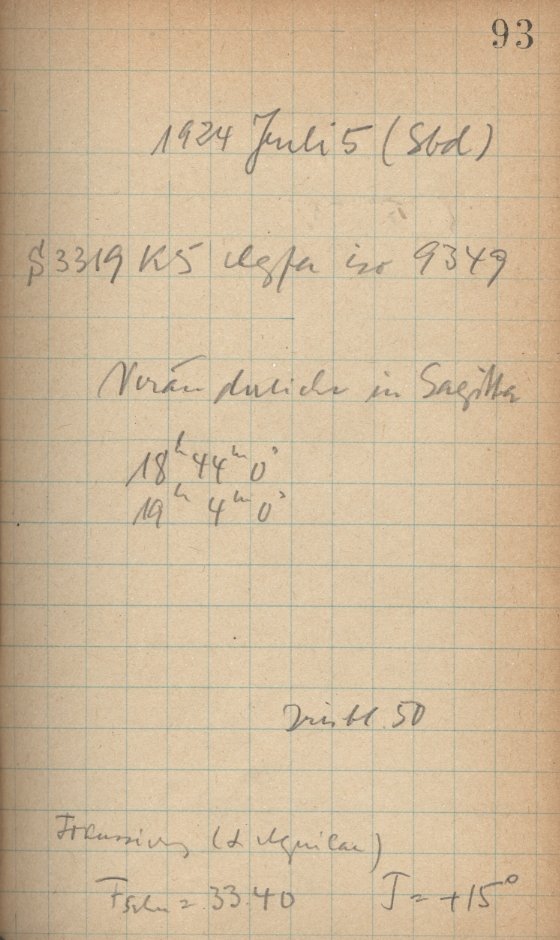 93
1924 Juli 5 (Sbd)
S 3319 K5 Agfa iso 9349
Veränderliche in Sagitta
18ʰ 44ᵐ 0ˢ
19ʰ 4ᵐ 0ˢ
Irisbl. 50
Fokussierung (α Aquilae)
F = 33.40 T = +15°